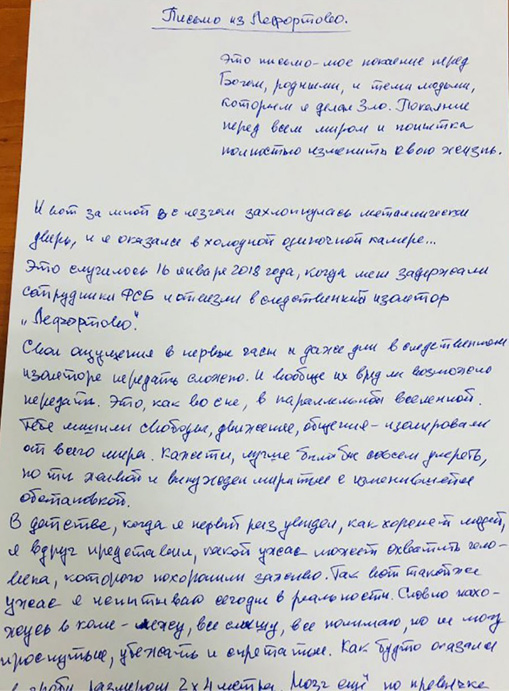 Письмо из Лефортово.
Это письмо-мое покаяние перед
Богом, родными, и теми людьми,
которым я делал Зло. Покаяние
перед всем миром и попытка
полностью изменить свою жизнь.
И вот за мной с лязгом захлопнулась металлическая
дверь, и я оказался в холодной одиночной камере...
Это случилось 16 января 2018 года, когда меня задержали
сотрудники ФСБ и отвезли в следственный изолятор
„Лефортово".
Свои ощущения в первые часы и даже дни в следственном
изоляторе передать сложно. И вообще их вряд ли возможно
передать. Это, как во сне, в параллельной вселенной.
Тебя лишили свободы, движения, общения-изолировали
от всего мира. Кажется, лучше было бы совсем умереть,
но ты живой и вынужден мириться с изменившейся
обстановкой.
В детстве, когда я первый раз увидел, как хоронят людей,
я вдруг представил, какой ужас может охватить чело-
века, которого похоронили заживо. Так вот такой же
ужас я испытываю сегодня в реальности. Словно нахо-
жусь в коме - лежу, все слышу, все понимаю, но не могу
проснуться, убежать и спрятаться. Как будто оказался
в гробу размером 2х4 метра. Мозг ещё по привычке